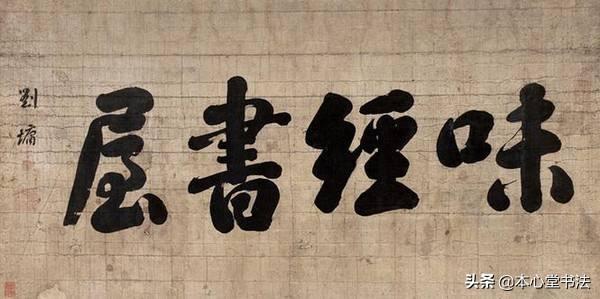 味經書屋
劉墉
头条 @本心堂书法